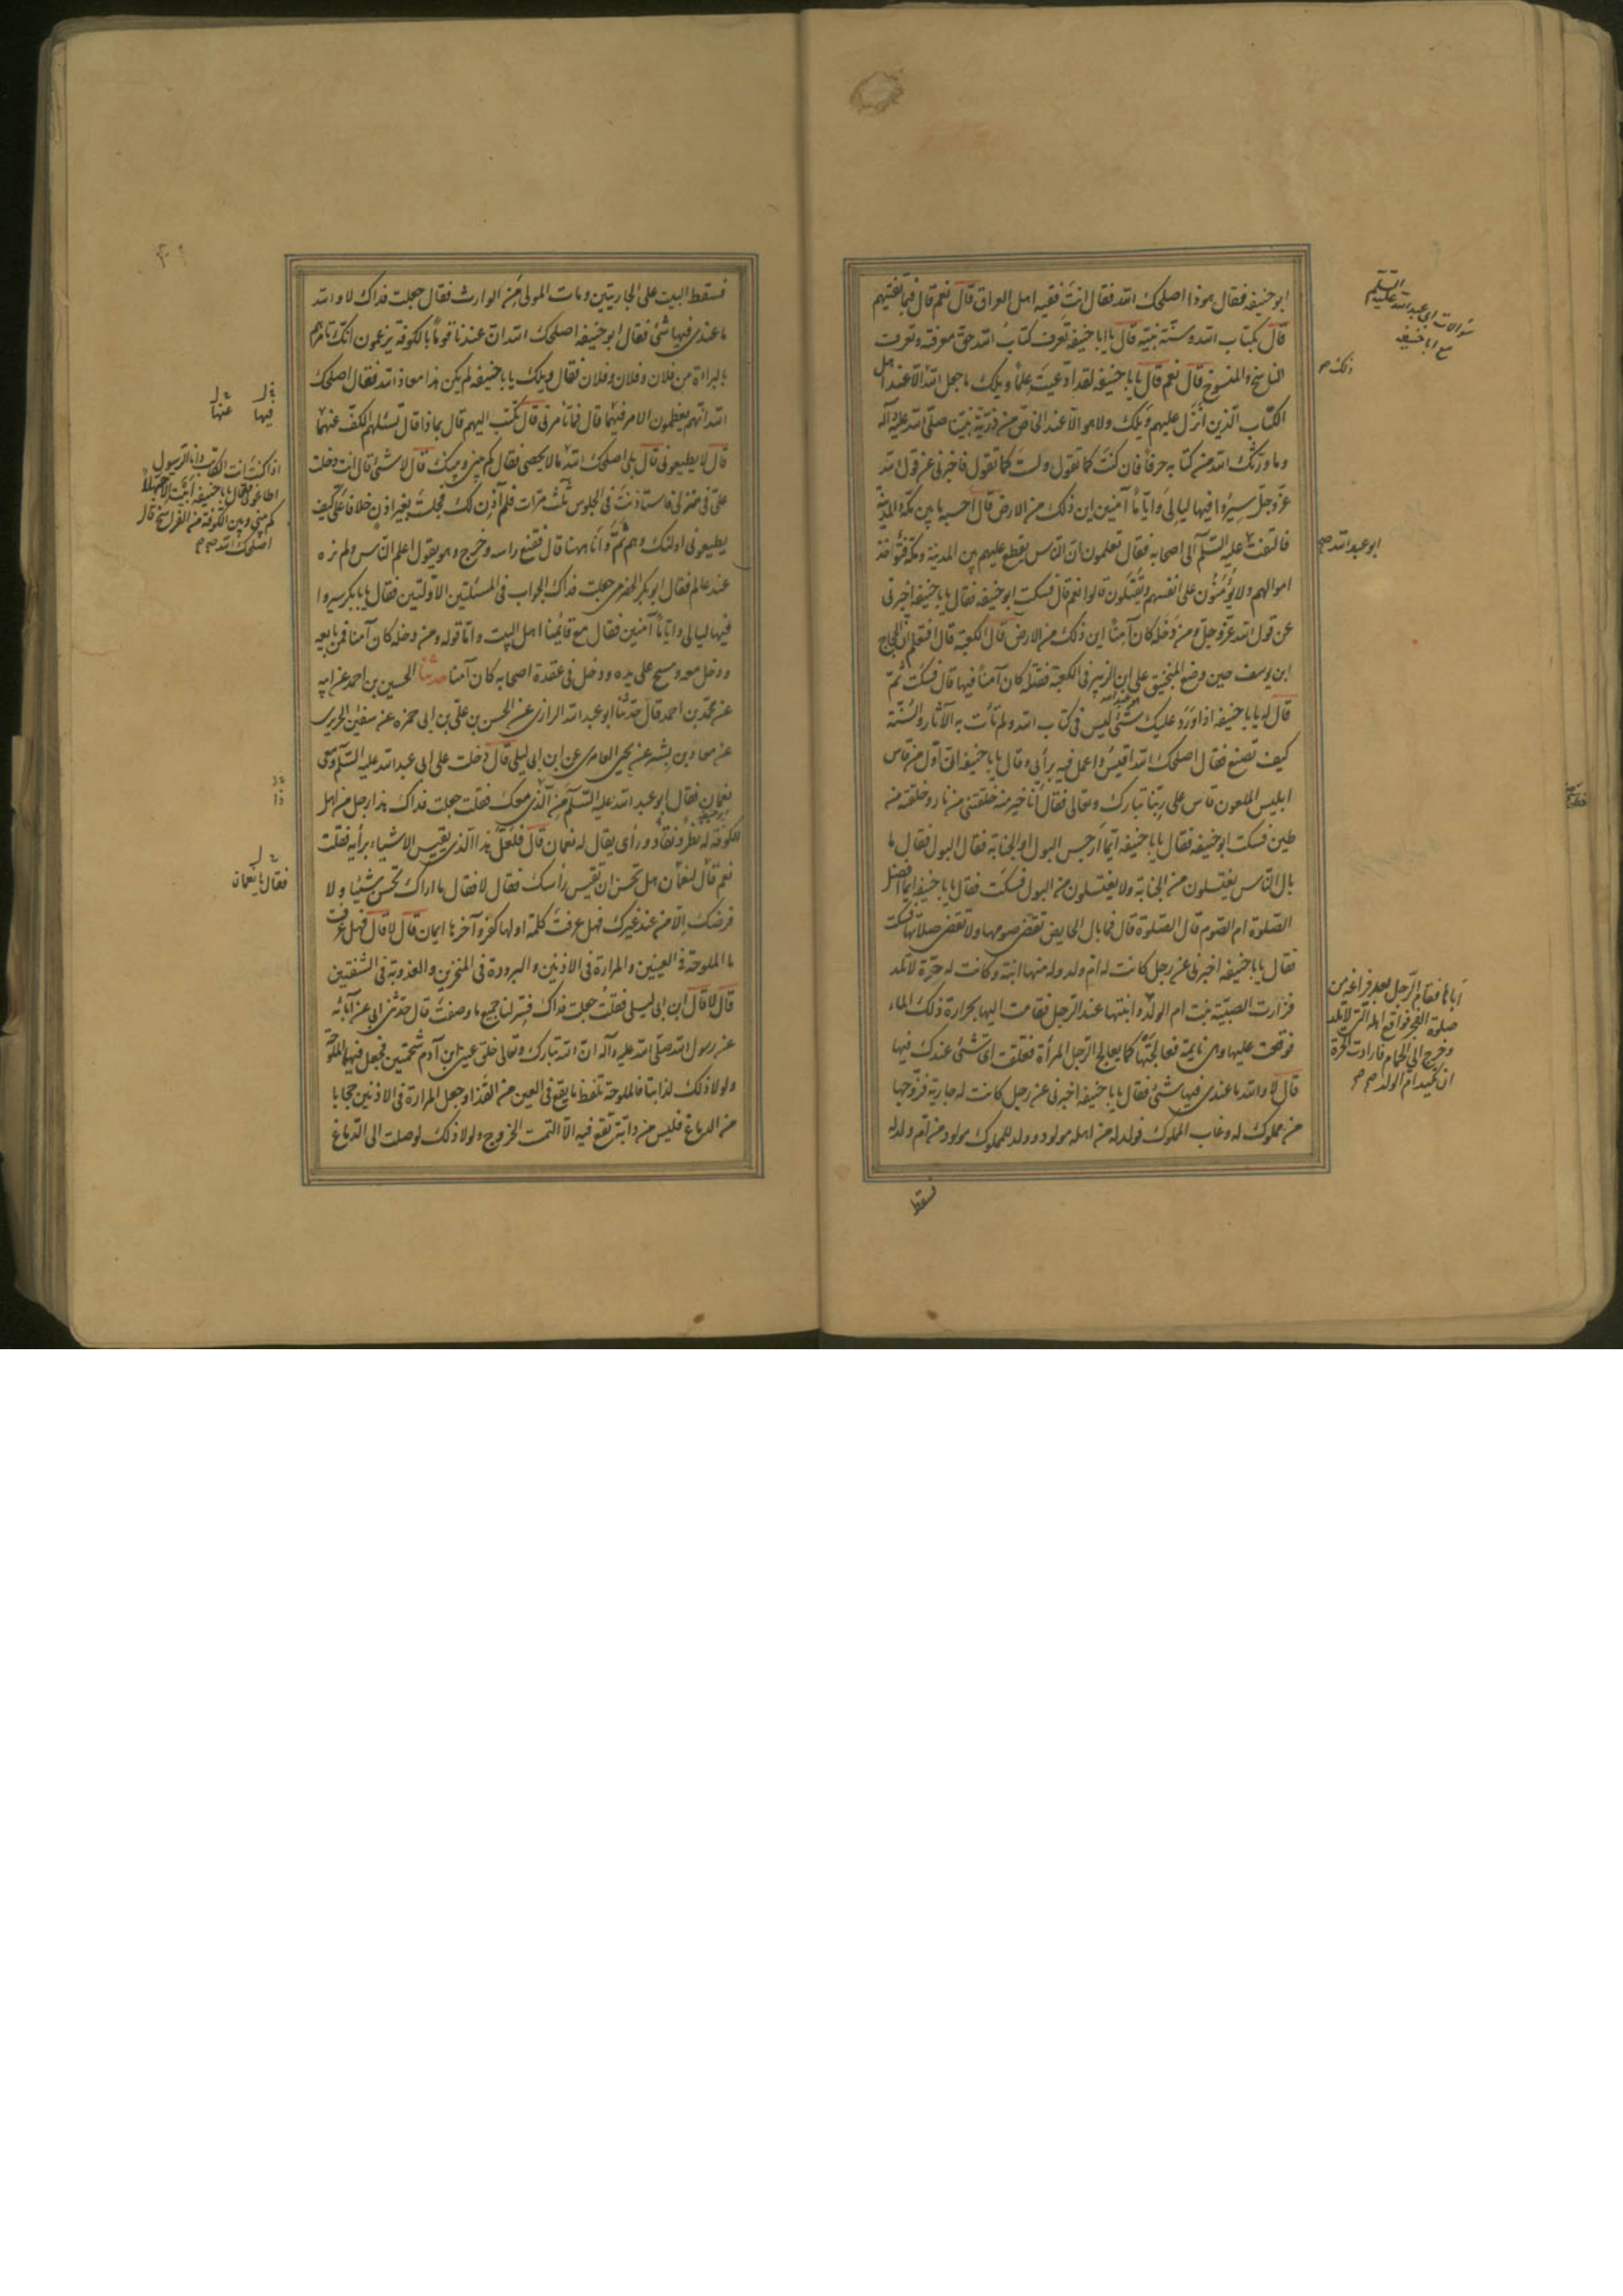 ابو حنيفه فقال هوذا اصلحك الله فقال انت فقيه اهل العراق قال نعم قال فبما تفتيهم
قال بكتاب الله وسنّة نبيّه قال يا ابا حنيفه تعرف كتاب الله حقّ معرفته وتعرف
الناسخ والمنسوخ قال نعم قال يا با حنيفه لقد ادّعيت علماً ويلك ما جعل الله الّا عند اهل
الكتاب الّذين انزل عليهم ويلك ولا هو الّا عند الخاصّ من ذريّة نبيّنا صلّى الله عليه وآله
وما ورّثك الله من كتابه حرفاً فان كنت كما تقول ولست كما تقول فاخبرني عن قول الله
عزّ وجلّ سيروا فيها ليالي وايّاماً آمنين اين ذلك من الارض قال احسبه ما بين مكّة والمدينة
فالتفت عليه السّلم الى اصحابه فقال تعلمون انّ النّاس يقطع عليهم بين المدينة ومكّة فتؤخذ
اموالهم ولا يؤمنون على انفسهم ويقتلون قالوا نعم قال فسكت ابو حنيفه فقال يا با حنيفه اخبرني
عن قول الله عزّ وجلّ ومن دخله كان آمناً اين ذلك من الارض قال الكعبة قال افتعلم انّ الحجاج
ابن يوسف حين وضع المنجنيق على ابن الزبير في الكعبة فقتله كان آمناً فيها قال فسكت ثمّ
قال له يا با حنيفه اذا ورد عليك شئ ليس في كتاب الله ولم تأت به الآثار والسّنّة
كيف تصنع فقال اصلحك الله اقيس واعمل فيه برأيي وقال يا با حنيفه انّ اوّل من قاس
ابليس الملعون قاس على ربّنا تبارك وتعالى فقال انا خير منه خلقتني من نار وخلقته من
طين فسكت ابو حنيفه فقال يا با حنيفه ايّما ارجس البول او الجنابة فقال البول فقال ما
بال النّاس يغتسلون من الجنابة ولا يغتسلون من البول فسكت فقال يا با حنيفه ايّما افضل
الصّلوة ام الصّوم قال الصّلوة قال فما بال الحايض تقضي صومها ولا تقضي صلاتها فسكت
فقال يا با حنيفه اخبرني عن رجل كانت له امّ ولد وله منها ابنة وكانت له حرّة لا تلد
فزارت الصبيّة بنت ام الولد اباها فقام الرّجل
فوقعت عليها وهي نايمة فعالجتها كما يعالج الرّجل المرأة فعلقت اىّ شئ عندك فيها
قال لا والله ما عندي فيها شئ فقال يا با حنيفه اخبرني عن رجل كانت له جارية فزوّجها
من مملوك له وغاب المملوك فولد له من اهله مولود وولد للمملوك مولود من ام ولد له
سؤالات ابي عبد الله عليه السّلم
مع ابا حنيفه
ذلك صح
ابو عبد الله صح
اباها فقام الرّجل بعد فراغه من
صلوة الفجر فواقع اهله الّتي لا تلد
وخرج الى الحمام فارادت الحرّة
ان تكيد امّ الولد
فسقط
فسقط البيت على الجاريتين ومات المولى من الوارث فقال جعلت فداك لا والله
ما عندي فيها شئ فقال ابو حنيفه اصلحك الله انّ عندنا قوماً بالكوفة يزعمون انّك تأمرهم
بالبراءة من فلان وفلان وفلان فقال ويلك يا با حنيفه لم يكن هذا معاذ الله فقال اصلحك
الله انّهم يعظمون الامر فيهما قال فما تأمرني قال تكتب اليهم قال بماذا قال تسئلهم الكفّ عنهما
قال لا يطيعوني قال بلى اصلحك الله
علىّ في منزلي فاستأذنت في الجلوس ثلث مرّات فلم آذن لك فجلست بغير اذن خلافاً علىّ كيف
يطيعوني اولئك وهم ثَمّ وانا ههنا قال فقنع راسه وخرج وهو يقول اعلم النّاس ولم نره
عند عالم فقال ابو بكر الحضرمي جعلت فداك الجواب في المسئلتين الاوّلتين فقال يا با بكر سيروا
فيها ليالي وايّاماً آمنين فقال مع قائمنا اهل البيت وامّا قوله ومن دخله كان آمنا فمن بايعه
ودخل معه ومسح على يده ودخل في عقدة اصحابه كان آمنا حدثنا الحسين بن احمد عن ابيه
عن محمّد بن احمد قال حدّثنا ابو عبد الله الرازي عن الحسن بن علىّ بن ابي حمزه عن سفين الحريري
عن معاذ بن بشر عن يحيى العامري عن ابن ابي ليلى قال دخلت على ابي عبد الله عليه السّلم ومعي
نعمان فقال ابو عبد الله عليه السّلم من الّذي معك فقلت جعلت فداك هذا رجل من اهل
الكوفة له نظر ونقاد ورأي يقال له نعمان قال فلعلّ هذا الّذي يقيس الاشياء برأيه فقلت
نعم قال يا نعمان هل تحسن ان تقيس رأسك فقال لا فقال ما اراك تحسن شيئا ولا
فرضك الّا من عند غيرك فهل عرفت كلمة اولها كفر وآخرها ايمان قال لا قال فهل عرفت
ما الملوحة في العينين والمرارة في الاذنين والبرودة في المنخرين والعذوبة في الشفتين
قال لا قال ابن ابي ليلى فقلت جعلت فداك فسّر لنا جميع ما وصفت قال حدّثني ابي عن آبائه
عن رسول الله صلّى الله عليه وآله انّ الله تبارك وتعالى خلق عيني ابن آدم شحمتين فجعل فيهما الملوحة
ولولا ذلك لذابتا فالملوحة تلفظ ما يقع في العين من القذا وجعل المرارة في الاذنين حجابا
من الدماغ فليس من دابّة تقع فيه الّا التمست الخروج ولولا ذلك لوصلت الى الدّماغ
فيها
عنها
اذا كنت انت الكاتب وانا الرّسول
اطاعوني فقال يا با حنيفه ابيت الّا جهلا
كم بيني وبين الكوفة من الفراسخ قال
اصلحك الله
فقال يا نعمان